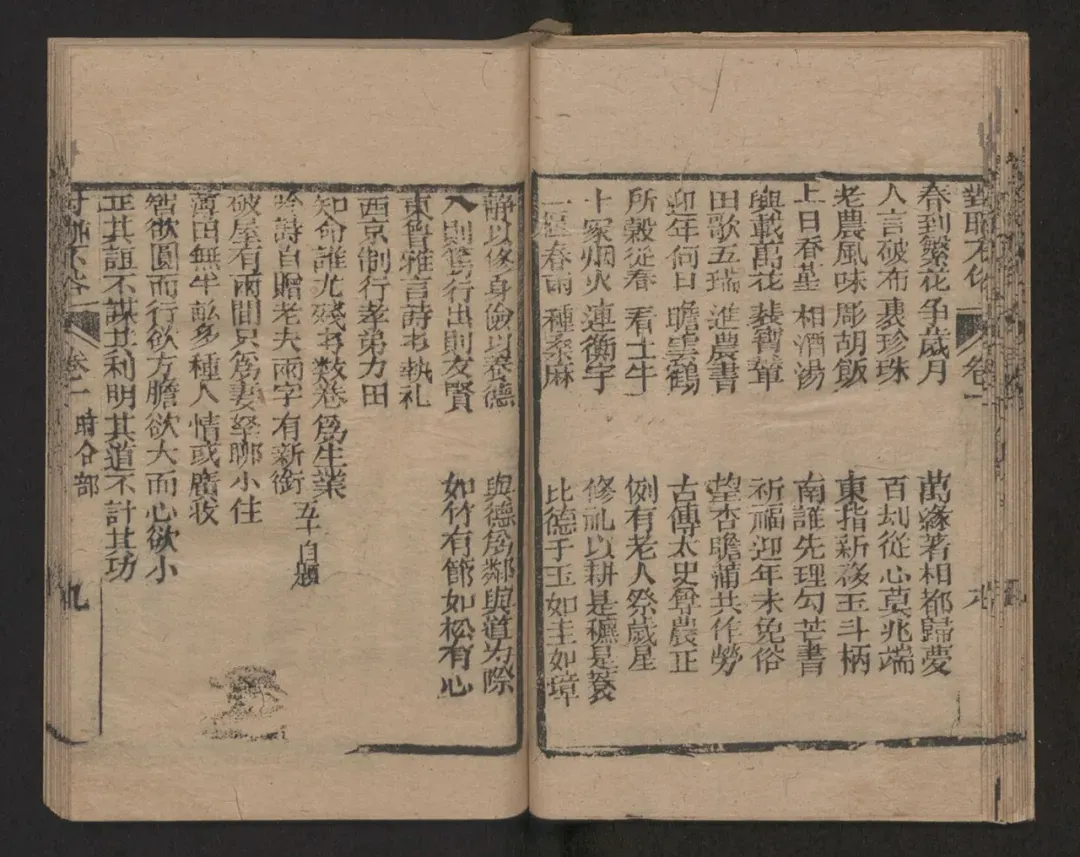 對聯不俗 卷一
春到繁花争歲月 萬緣著相都歸夢
人言破布裹珍珠 百刧從心莫兆端
老農風味彫胡飯 東指新移玉斗柄
上日春臺相酒湯 南誰先理勾芒書
輿載萬花裝寶輦 祈福迎年未免俗
田歌五瑞進農書 望杏瞻蒲共作勞
迎年何日瞻雲鶴 古傳太史尊農正
所穀從春看土牛 例有老人祭歲星
十家烟火連衡宇 修礼以耕是穮是蓘
一犂春雨種桑麻 比德于玉如圭如璋
靜以修身儉以養德 與德爲鄰與道为際
入則篤行出則友賢 如竹有節如松有心
東魯雅言詩書執礼
西京制行孝弟力田
知命誰尤殘書数卷爲生業
吟詩自贈老夫兩字有新銜 五十自題
破屋有兩間只爲妻孥聊小住
薄田無牛畝多種人情或廣收
智欲圓而行欲方膽欲大而心欲小
正其誼不謀其利明其道不計其功
對聯不俗 卷一 時令部 九